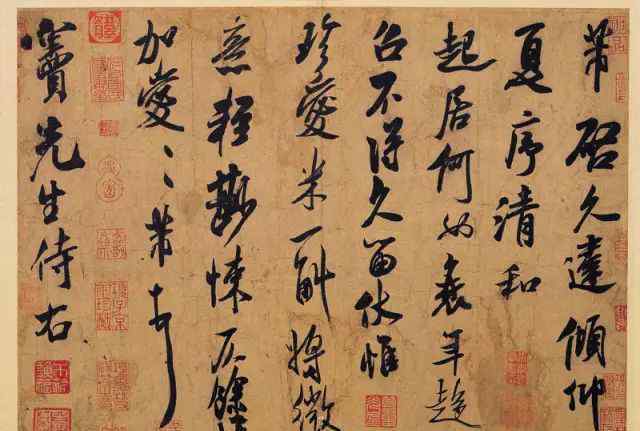 芾啓久違傾仰
夏序清和
起居何如衰年趍
召不得久留伏惟
珍愛米一斛將微
意輕尠悚仄餘
加愛〻芾頓首
竇先生侍右